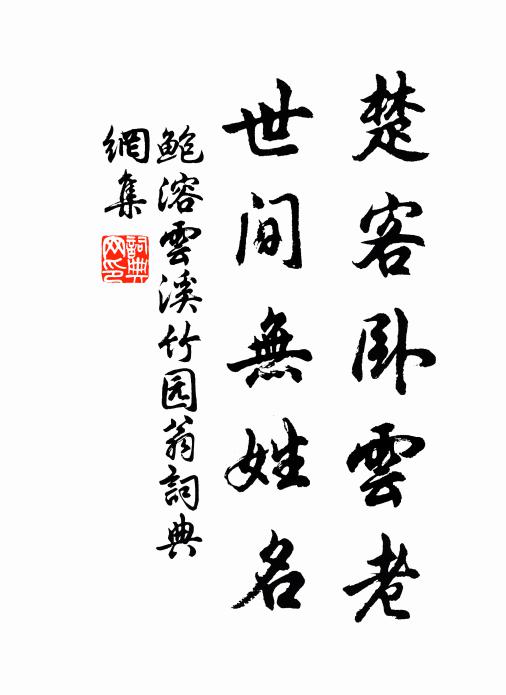 楚客卧雲老
世间無姓名
鲍溶雲溪竹园翁詞典
網集
詞典
网印